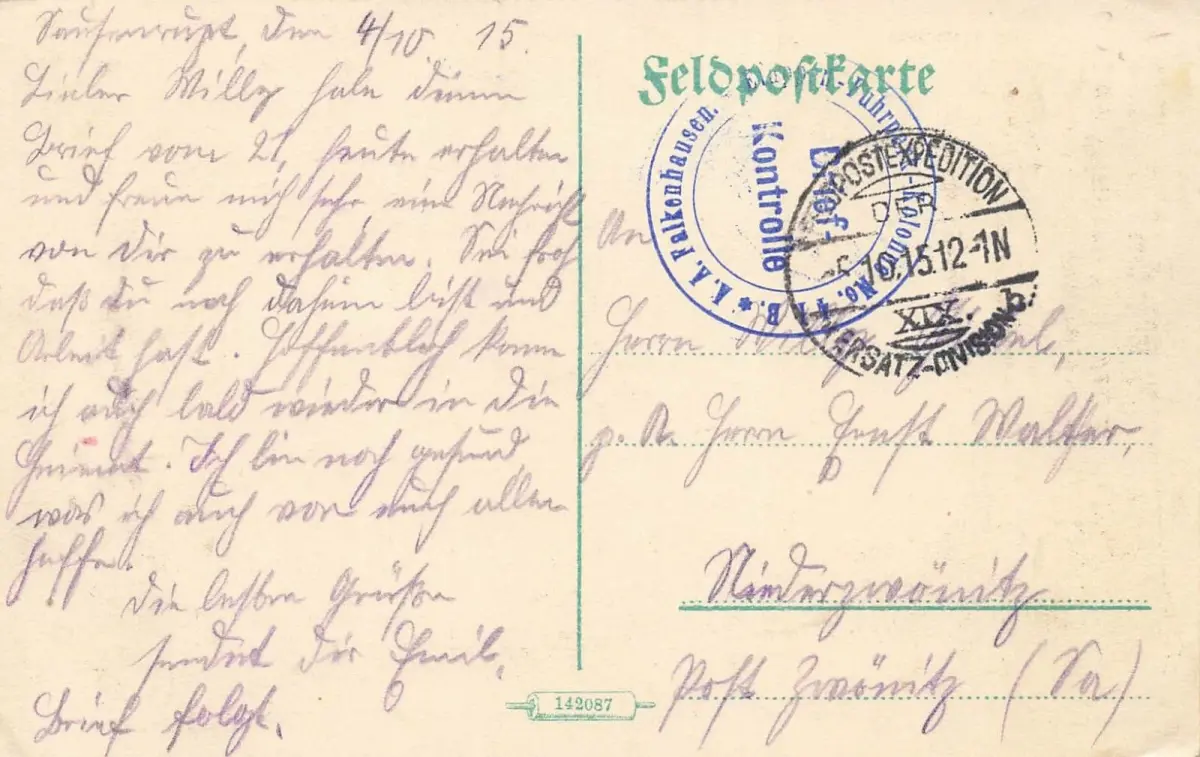 Saufenrupt, den 4/10 15.
Lieber Willy habe deinen
Brief vom 21, heute erhalten
und freue mich sehr, eine Nachricht
von Dir zu erhalten. Sei froh
daß du noch daheim bist und
Arbeit hast. Hoffendlich komme
ich auch bald wieder in die
Heimat. Ich bin noch gesund,
was ich auch von euch allen
hoffe.
Die besten Grüße
sendet dir Emil.
Brief folgt.
Feldpostkarte
K. B. Falkenhausen. Fuhrpark-Kolonne No. B.*
Brief
Kontrolle
FELDPOSTEXPEDITION
DER
5.10.15.12-1N
XIX.
ERSATZ-DIVISION b.
An
Herrn
p. A. Herrn Ernst Walther,
Niederzwönitz
Post Zwönitz (Sa)
142087